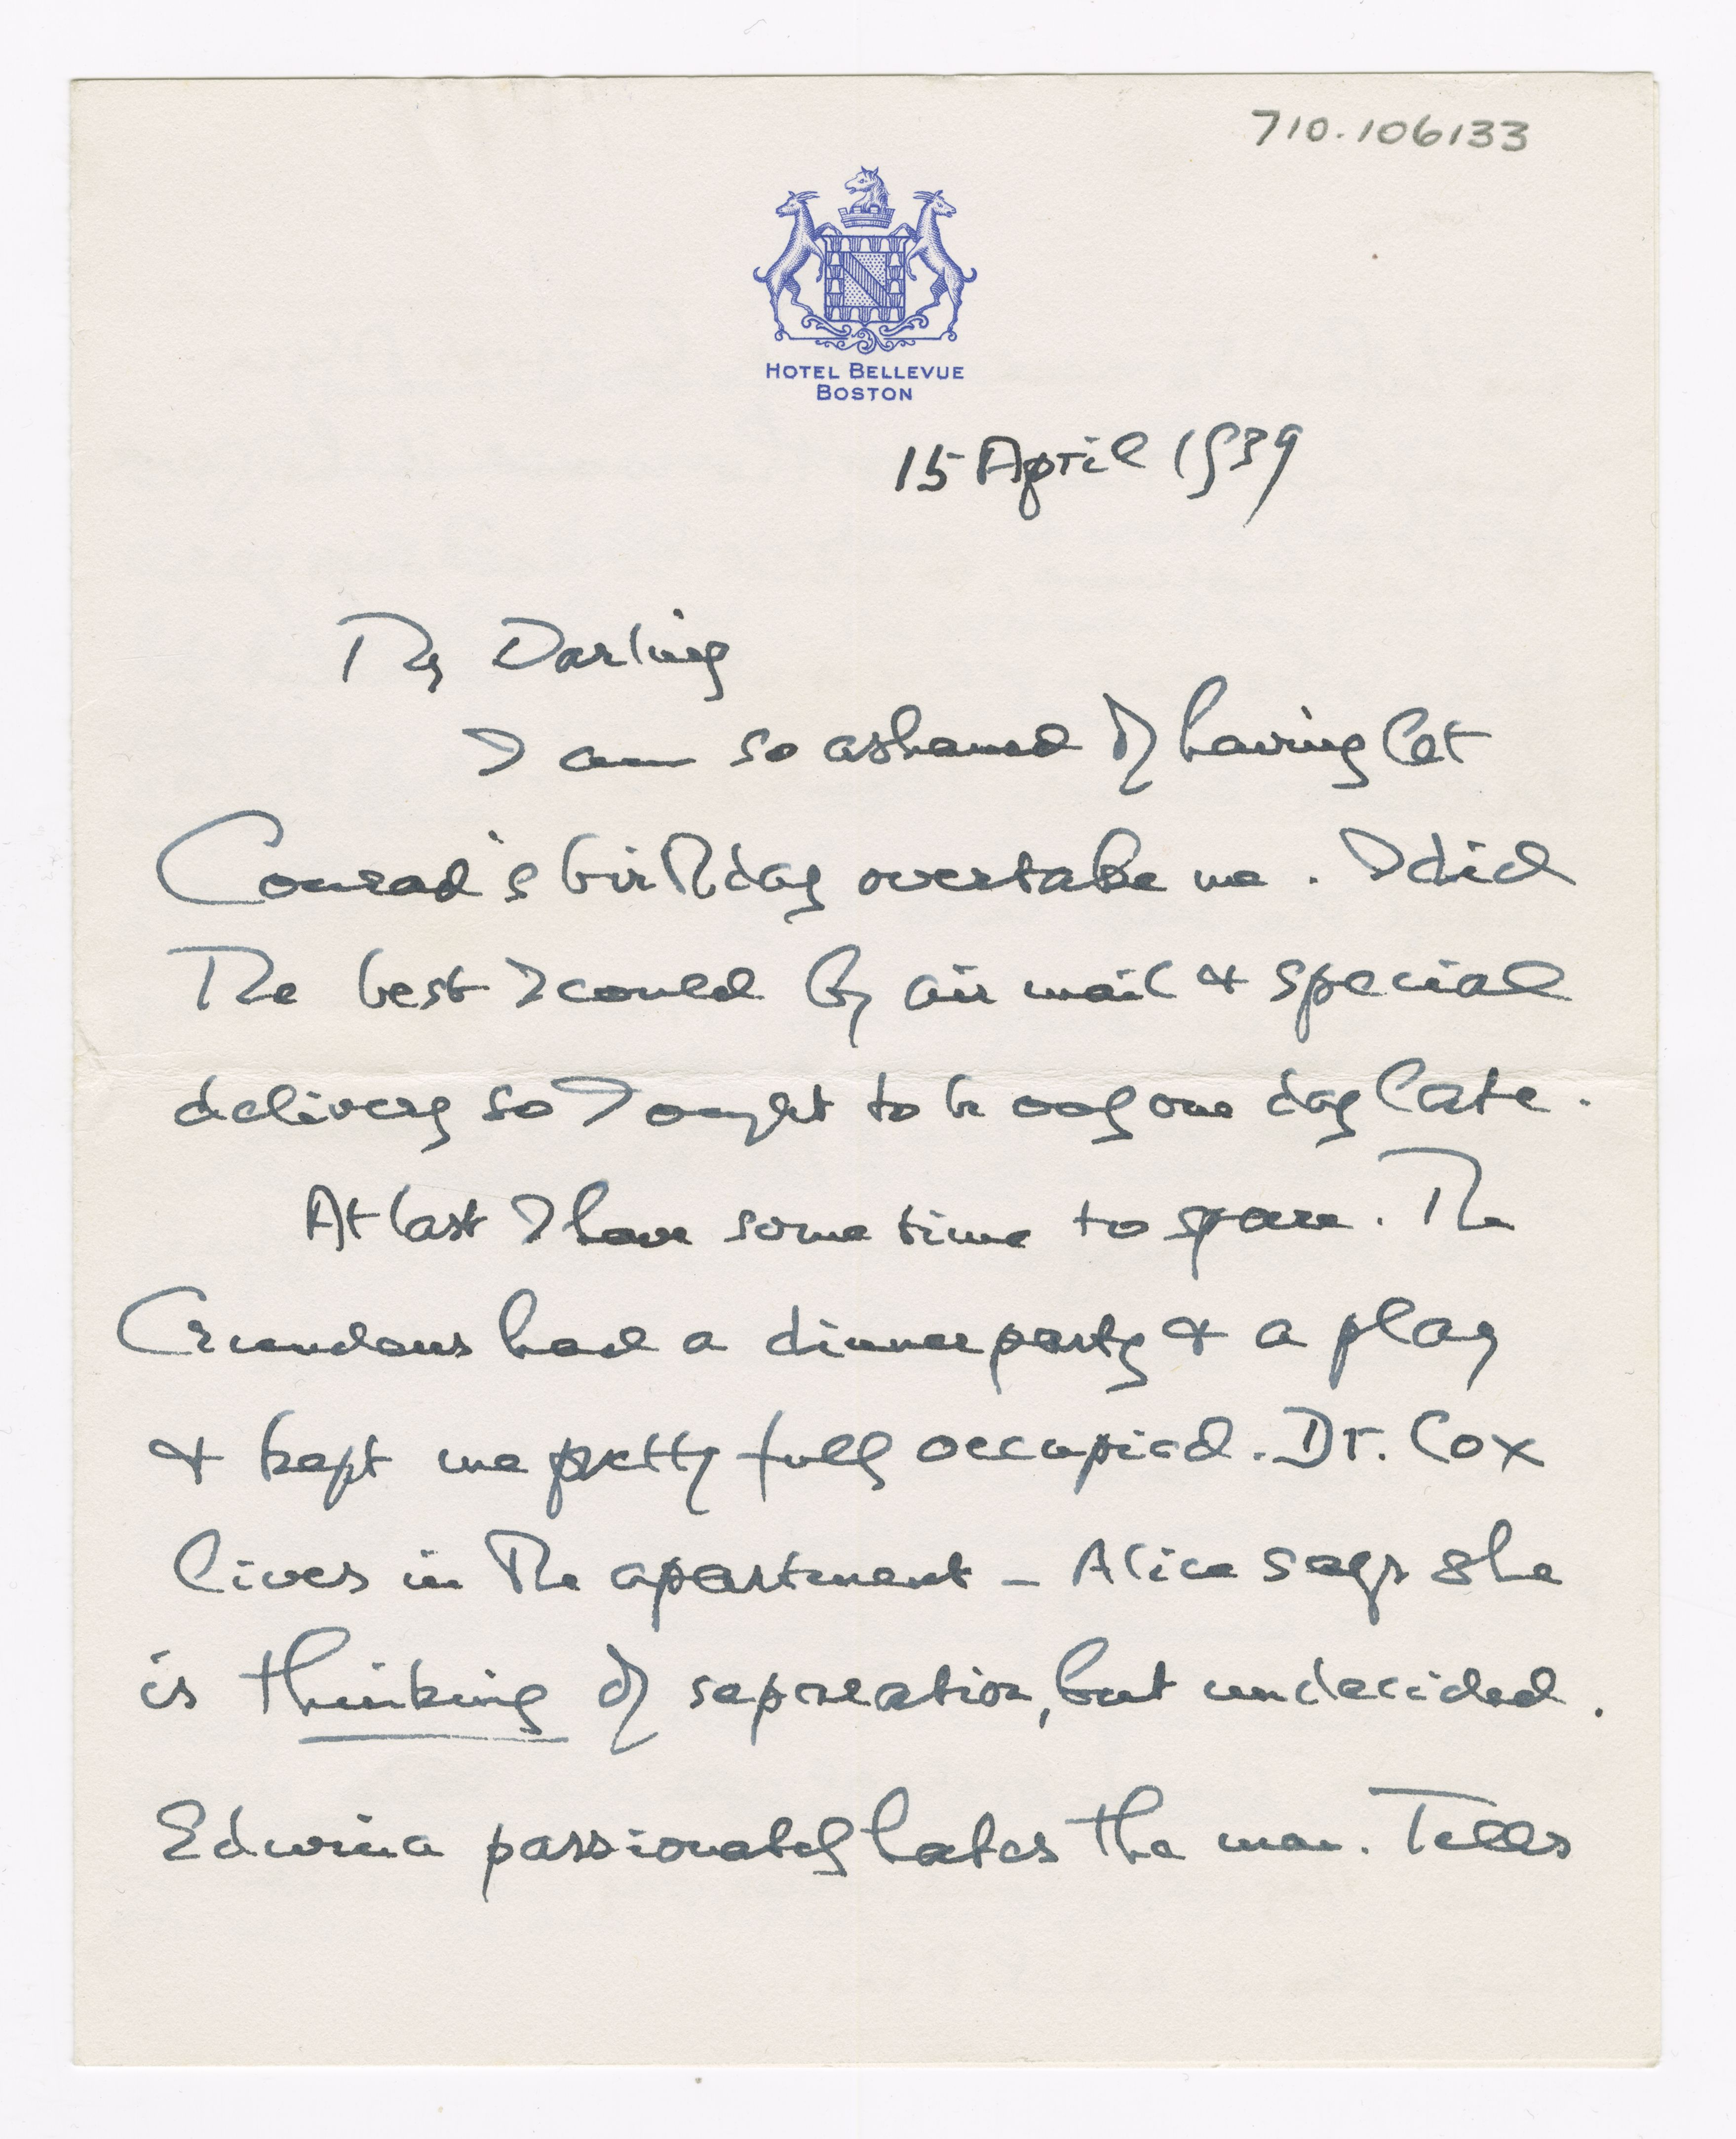 710.106133
HOTEL BELLEVUE
BOSTON
15 April 1939
My Darling
I am so ashamed of having let
Conrad's birthday overtake me. I did
The best I could by air mail & special
delivery so I ought to be only one day late.
At last I have some time to spare. The
had a dinner party & a play
& kept me pretty fully occupied. Dr. Cox
lives in the apartment – Alice says she
is thinking of sepreation, but undecided.
Edwina passionately hates the man. Tells